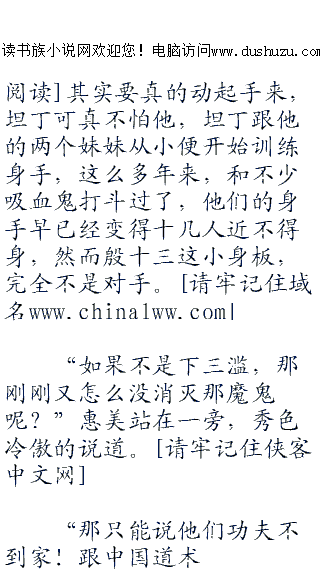 读书族小说网欢迎您！电脑访问www.dushuzu.com
阅读]其实要真的动起手来，
坦丁可真不怕他，坦丁跟他
的两个妹妹从小便开始训练
身手，这么多年来，和不少
吸血鬼打斗过了，他们的身
手早已经变得十几人近不得
身，然而殷十三这小身板，
完全不是对手。[请牢记住域
名www.china1ww.com|
“如果不是下三滥，那
刚刚又怎么没消灭那魔鬼
呢？”惠美站在一旁，秀色
冷傲的说道。[请牢记住侠客
中文网]
“那只能说他们功夫不
到家！跟中国道术